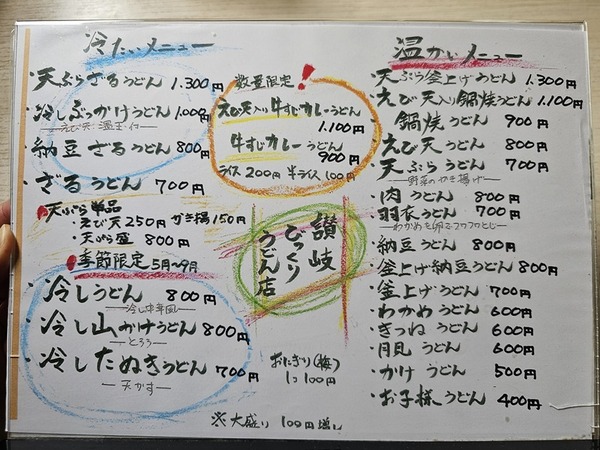 冷たいメニュー
・天ぷらざるうどん 1.300円
・冷しぶっかけうどん 1.000円
―えび天・温玉・付―
・納豆ざるうどん 800円
・ざるうどん 700円
天ぷら単品
・えび天250円 かき揚150円
・天ぷら盛 800円
季節限定 5月〜9月
・冷しうどん 800円
―冷し中華風―
・冷し山かけうどん 800円
―とろろ―
・冷したぬきうどん 700円
―天かす―
数量限定!
えび天入り牛すじカレーうどん
1.100円
牛すじカレーうどん
900円
ライス200円 半ライス100円
讃岐
こっくり
うどん店
おにぎり(梅)
1コ 100円
※大盛り 100円増し
温かいメニュー
・天ぷら釜上げうどん 1.300円
・えび天入り鍋焼うどん 1.100円
・鍋焼うどん 900円
・えび天うどん 800円
・天ぷらうどん 700円
―野菜のかき揚げ―
・肉うどん 800円
・羽衣うどん 700円
―わかめを卵でフワフワとじ―
・納豆うどん 800円
・釜上げ納豆うどん 800円
・釜上げうどん 700円
・わかめうどん 600円
・きつねうどん 600円
・月見うどん 600円
・かけうどん 500円
・お子様うどん 400円